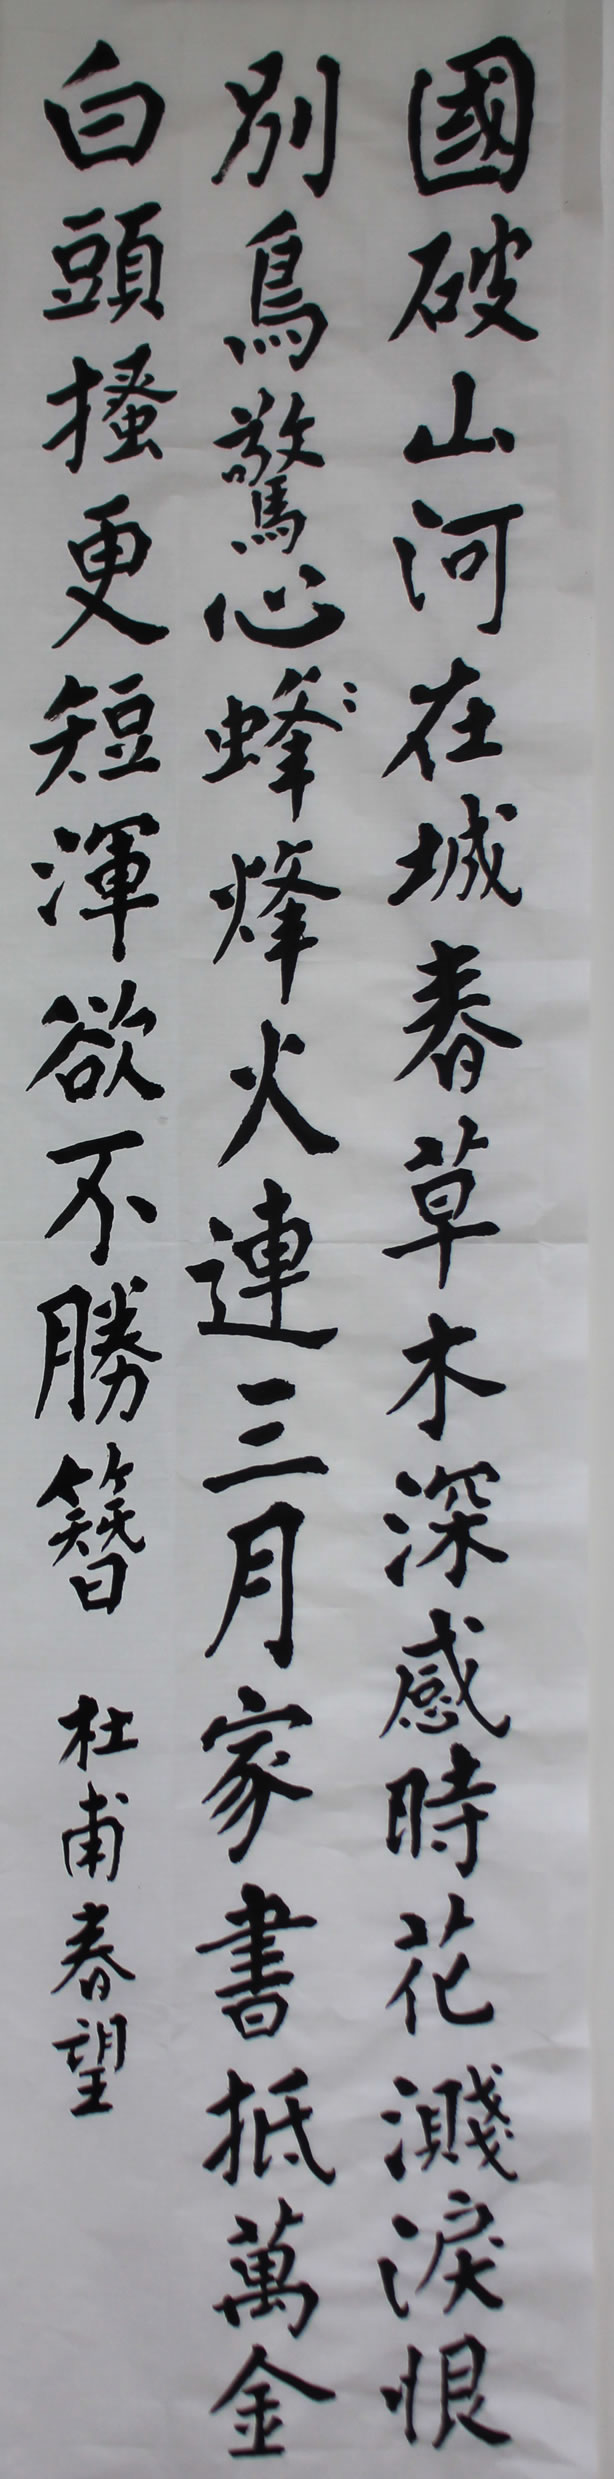 國破山河在城春草木深感時花濺淚恨
別鳥驚心蜂烽火連三月家書抵萬金
白頭搔更短渾欲不勝簪 杜甫春望